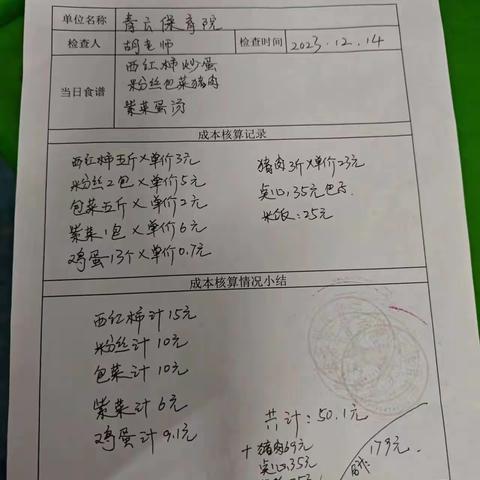 单位名称 青云保育院
检查人 胡老师 检查时间 2023.12.14
当日食谱
西红柿炒蛋
粉丝包菜猪肉
紫菜蛋汤
成本核算记录
西红柿五斤×单价3元
粉丝2包×单价5元
包菜五斤×单价2元
紫菜1包×单价6元
鸡蛋13个×单价0.7元
猪肉3斤×单价23元
点心35元
米饭:25元
成本核算情况小结
西红柿计15元
粉丝计10元
包菜计10元
紫菜计6元
鸡蛋计9.1元
共计:50.1元
+猪肉69元
点心35元
179元.